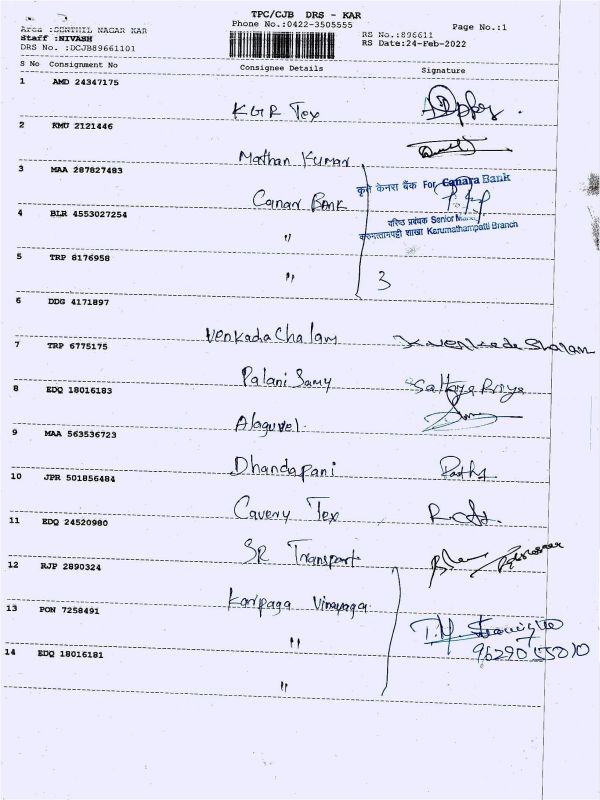 TPC/CJB DRS - KAR
Area :SENTHIL NAGAR KAR
Phone No.:0422-3505555
Page No.:1
Staff :NIVASH
RS No.:896611
DRS No. :DCJB89661101
RS Date:24-Feb-2022
S No Consignment No Consignee Details Signature
1 AMD 24347175
KGR Tex
2 KMU 2121446
Mathan Kumar
3 MAA 287827483
कृते केनरा बैंक For Canara Bank
Canara Bank
4 BLR 4553027254
वरिष्ठ प्रबंधक Senior Manager
करुमात्तमपट्टी शाखा Karumathampatti Branch
"
5 TRP 8176958
"
3
6 DDG 4171897
Venkada Chalam
7 TRP 6775175
Palani Samy Sathya Priya
8 EDQ 18016183
Alaguvel
9 MAA 563536723
Dhandapani
10 JPR 501856484
Cavery Tex
11 EDQ 24520980
SR Transport
12 RJP 2890324
Karpaga Vinayaga
13 PON 7258491
"
14 EDQ 18016181
"